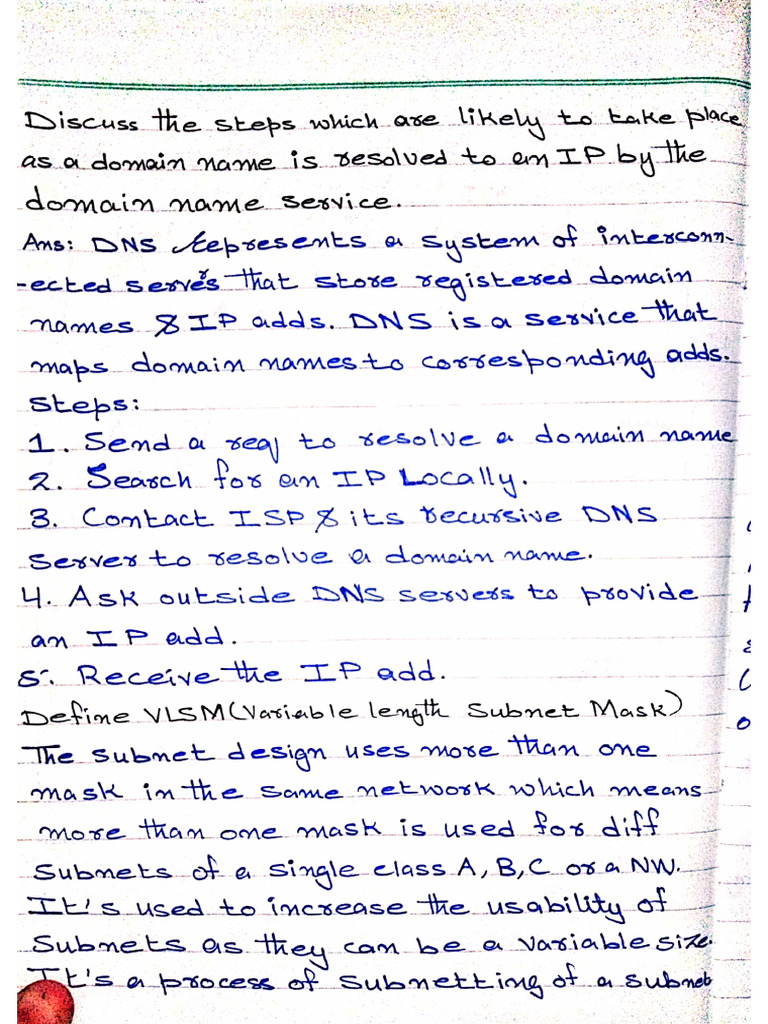 Discuss the steps which are likely to take place
as a domain name is resolved to an IP by the
domain name service.
Ans: DNS represents a system of interconn-
-ected servers that store registered domain
names & IP adds. DNS is a service that
maps domain names to corresponding adds.
Steps:
1. Send a req to resolve a domain name
2. Search for an IP Locally.
3. Contact ISP & its recursive DNS
Server to resolve a domain name.
4. Ask outside DNS servers to provide
an IP add.
5. Receive the IP add.
Define VLSM (Variable length Subnet Mask)
The subnet design uses more than one
mask in the same network which means
more than one mask is used for diff
Subnets of a single class A, B, C or a NW.
It's used to increase the usability of
Subnets as they can be a variable size.
It's a process of subnetting of a subnet